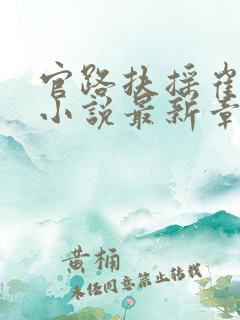 官路扶摇崔
小说最新章
黄桶
未经同意禁止转载